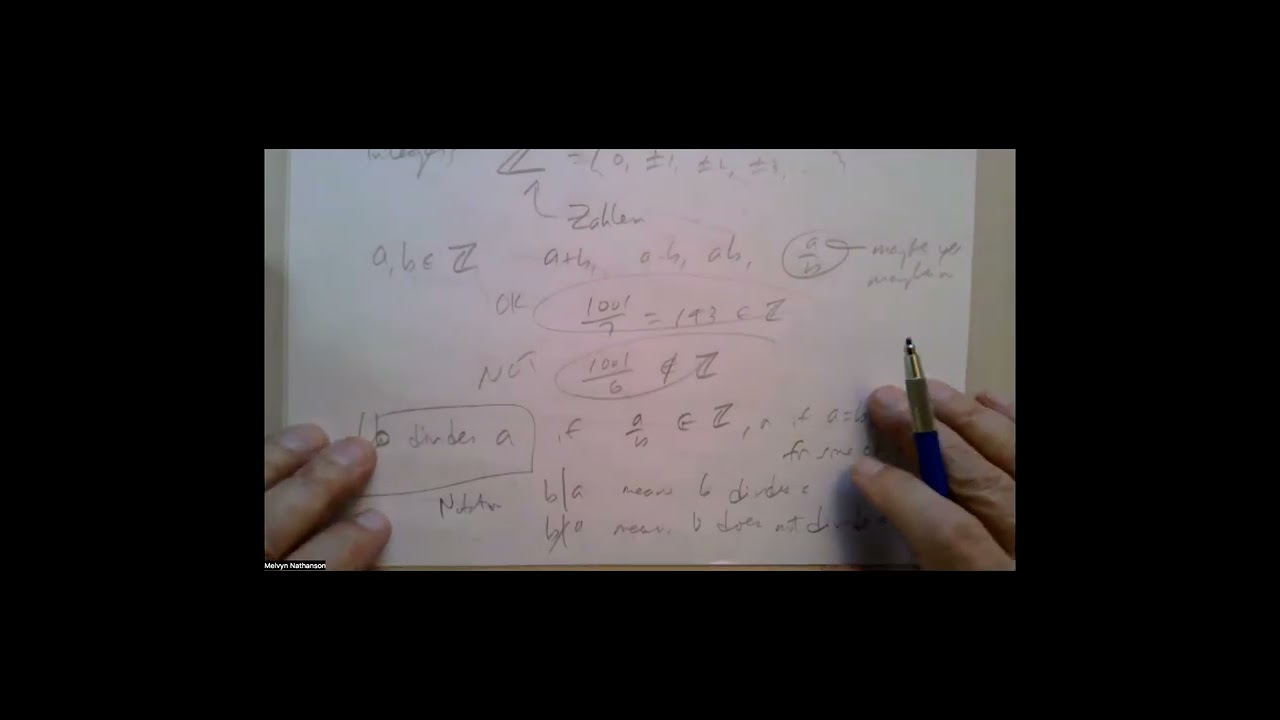 Integers ℤ = { 0, ±1, ±2, ±3, ... }
Zahlen
a, b ∈ ℤ a+b, a-b, ab, a/b maybe yes
maybe n
OK 1001/7 = 143 ∈ ℤ
NOT 1001/6 ∉ ℤ
b divides a if a/b ∈ ℤ, if a=b
for some
Notation b|a means b divides a
b∤a means b does not divide a
Melvyn Nathanson